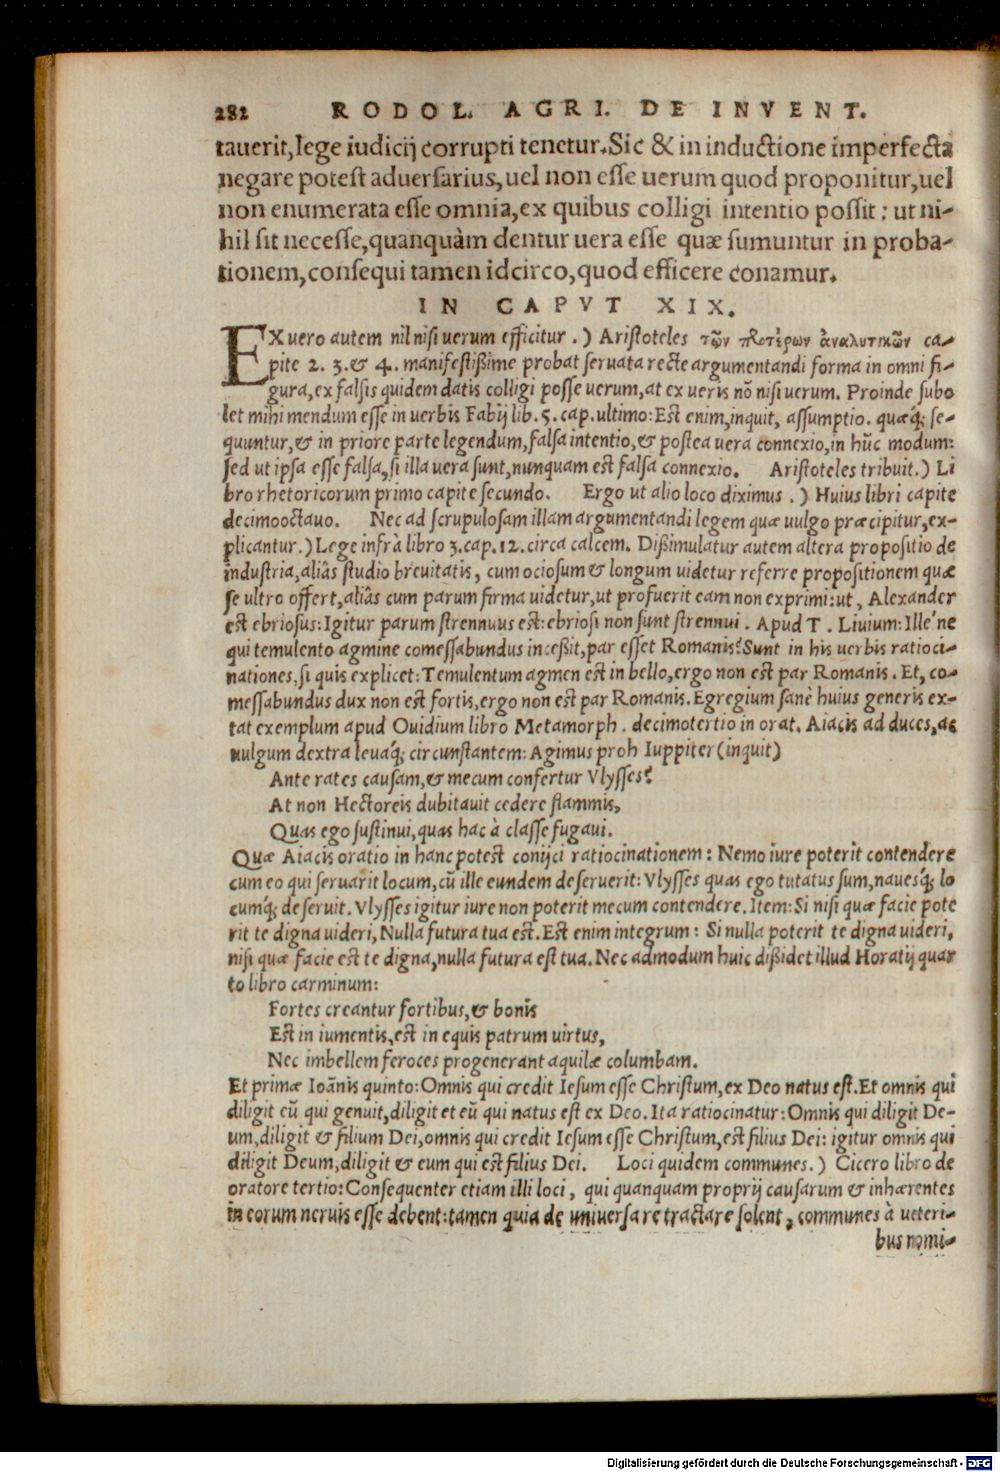 282 RODOL. AGRI. DE INVENT.
tauerit, lege iudicij corrupti tenetur. Sic & in inductione imperfecta
negare potest aduersarius, uel non esse uerum quod proponitur, uel
non enumerata esse omnia, ex quibus colligi intentio possit: ut ni-
hil sit necesse, quanquàm dentur uera esse quæ sumuntur in proba-
tionem, consequi tamen idcirco, quod efficere conamur.
IN CAPVT XIX.
EX uero autem nil nisi uerum efficitur.) Aristoteles τῶν προτέρων ἀναλυτικῶν ca-
pite 2. 3. & 4. manifestißime probat seruata recte argumentandi forma in omni fi-
gura, ex falsis quidem datis colligi posse uerum, at ex ueris nō nisi uerum. Proinde subo
let mihi mendum esse in uerbis Fabij lib. 5. cap. ultimo: Est enim, inquit, assumptio. quæq́; se-
quuntur, & in priore parte legendum, falsa intentio, & postea uera connexio, in hūc modum:
sed ut ipsa esse falsa, si illa uera sunt, nunquam est falsa connexio. Aristoteles tribuit.) Li
bro rhetoricorum primo capite secundo. Ergo ut alio loco diximus.) Huius libri capite
decimooctauo. Nec ad scrupulosam illam argumentandi legem quæ uulgo præcipitur, ex-
plicantur.) Lege infrà libro 3. cap. 12. circa calcem. Dißimulatur autem altera propositio de
industria, aliâs studio breuitatis, cum ociosum & longum uidetur referre propositionem quæ
se ultro offert, aliâs cum parum firma uidetur, ut profuerit eam non exprimi: ut, Alexander
est ebriosus: Igitur parum strennuus est: ebriosi non sunt strennui. Apud T. Liuium: Ille'ne
qui temulento agmine comessabundus inceßit, par esset Romanis? Sunt in his uerbis ratioci-
nationes, si quis explicet: Temulentum agmen est in bello, ergo non est par Romanis. Et, co-
messabundus dux non est fortis, ergo non est par Romanis. Egregium sanè huius generis ex-
tat exemplum apud Ouidium libro Metamorph. decimotertio in orat. Aiacis ad duces, ac
uulgum dextra leuaq́; circunstantem: Agimus proh Iuppiter (inquit)
Ante rates causam, & mecum confertur Vlysses?
At non Hectoreis dubitauit cedere flammis,
Quas ego sustinui, quas hac à classe fugaui.
Quæ Aiacis oratio in hanc potest conijci ratiocinationem: Nemo iure poterit contendere
cum eo qui seruarit locum, cū ille eundem deseruerit: Vlysses quas ego tutatus sum, nauesq́; lo
cumq́; deseruit. Vlysses igitur iure non poterit mecum contendere. Item: Si nisi quæ facie pote
rit te digna uideri, Nulla futura tua est. Est enim integrum: Si nulla poterit te digna uideri,
nisi quæ facie est te digna, nulla futura est tua. Nec admodum huic dißidet illud Horatij quar
to libro carminum:
Fortes creantur fortibus, & bonis
Est in iumentis, est in equis patrum uirtus,
Nec imbellem feroces progenerant aquilæ columbam.
Et primæ Ioānis quinto: Omnis qui credit Iesum esse Christum, ex Deo natus est. Et omnis qui
diligit eū qui genuit, diligit et eū qui natus est ex Deo. Ita ratiocinatur: Omnis qui diligit De-
um, diligit & filium Dei, omnis qui credit Iesum esse Christum, est filius Dei: igitur omnis qui
diligit Deum, diligit & eum qui est filius Dei. Loci quidem communes.) Cicero libro de
oratore tertio: Consequenter etiam illi loci, qui quanquam proprij causarum & inhærentes
in eorum neruis esse debent: tamen quia de uniuersa re tractare solent, communes à ueteri-
bus nomi-
Digitalisierung gefördert durch die Deutsche Forschungsgemeinschaft - DFG